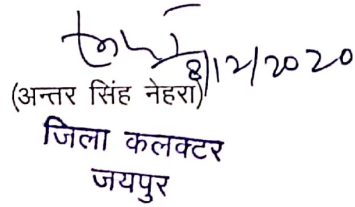 8/12/2020
(अन्तर सिंह नेहरा)
जिला कलक्टर
जयपुर